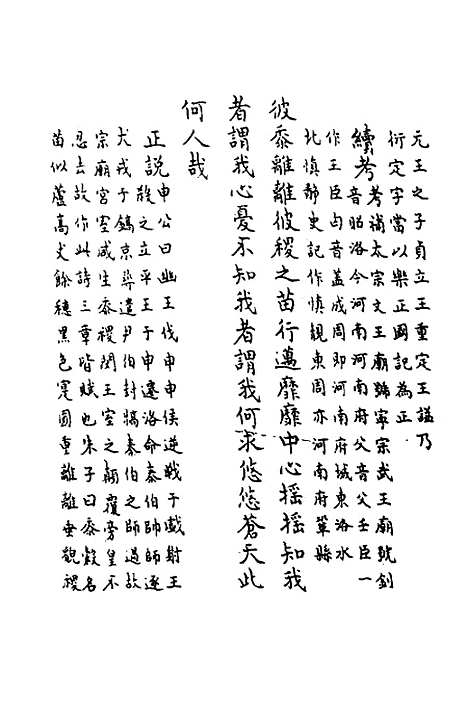 元王之子貞立王重定王謚乃
衍定字當以樂正國記為正
續考考補太宗文王廟號寕宗武王廟號釗
音昭洛今河南河南府父音父壬臣一
作王臣匄音盖成周即河南府城東洛水
北慎静史記作慎靚東周亦河南府鞏縣
彼黍離離彼稷之苗行邁靡靡中心摇摇知我
者謂我心憂不知我者謂我何求悠悠蒼天此
何人哉
正說申公曰幽王伐申申侯逆戰于戲射王
殺之立平王于申遷洛命秦伯帥師逐
犬戎于鎬京尋遣尹伯封犒秦伯之師過故
宗廟宮室咸生黍稷閔王室之顛覆旁皇不
忍去故作此詩三章皆賦也朱子曰黍穀名
苗似蘆高丈餘穗黑色寔圓重離離垂貌稷